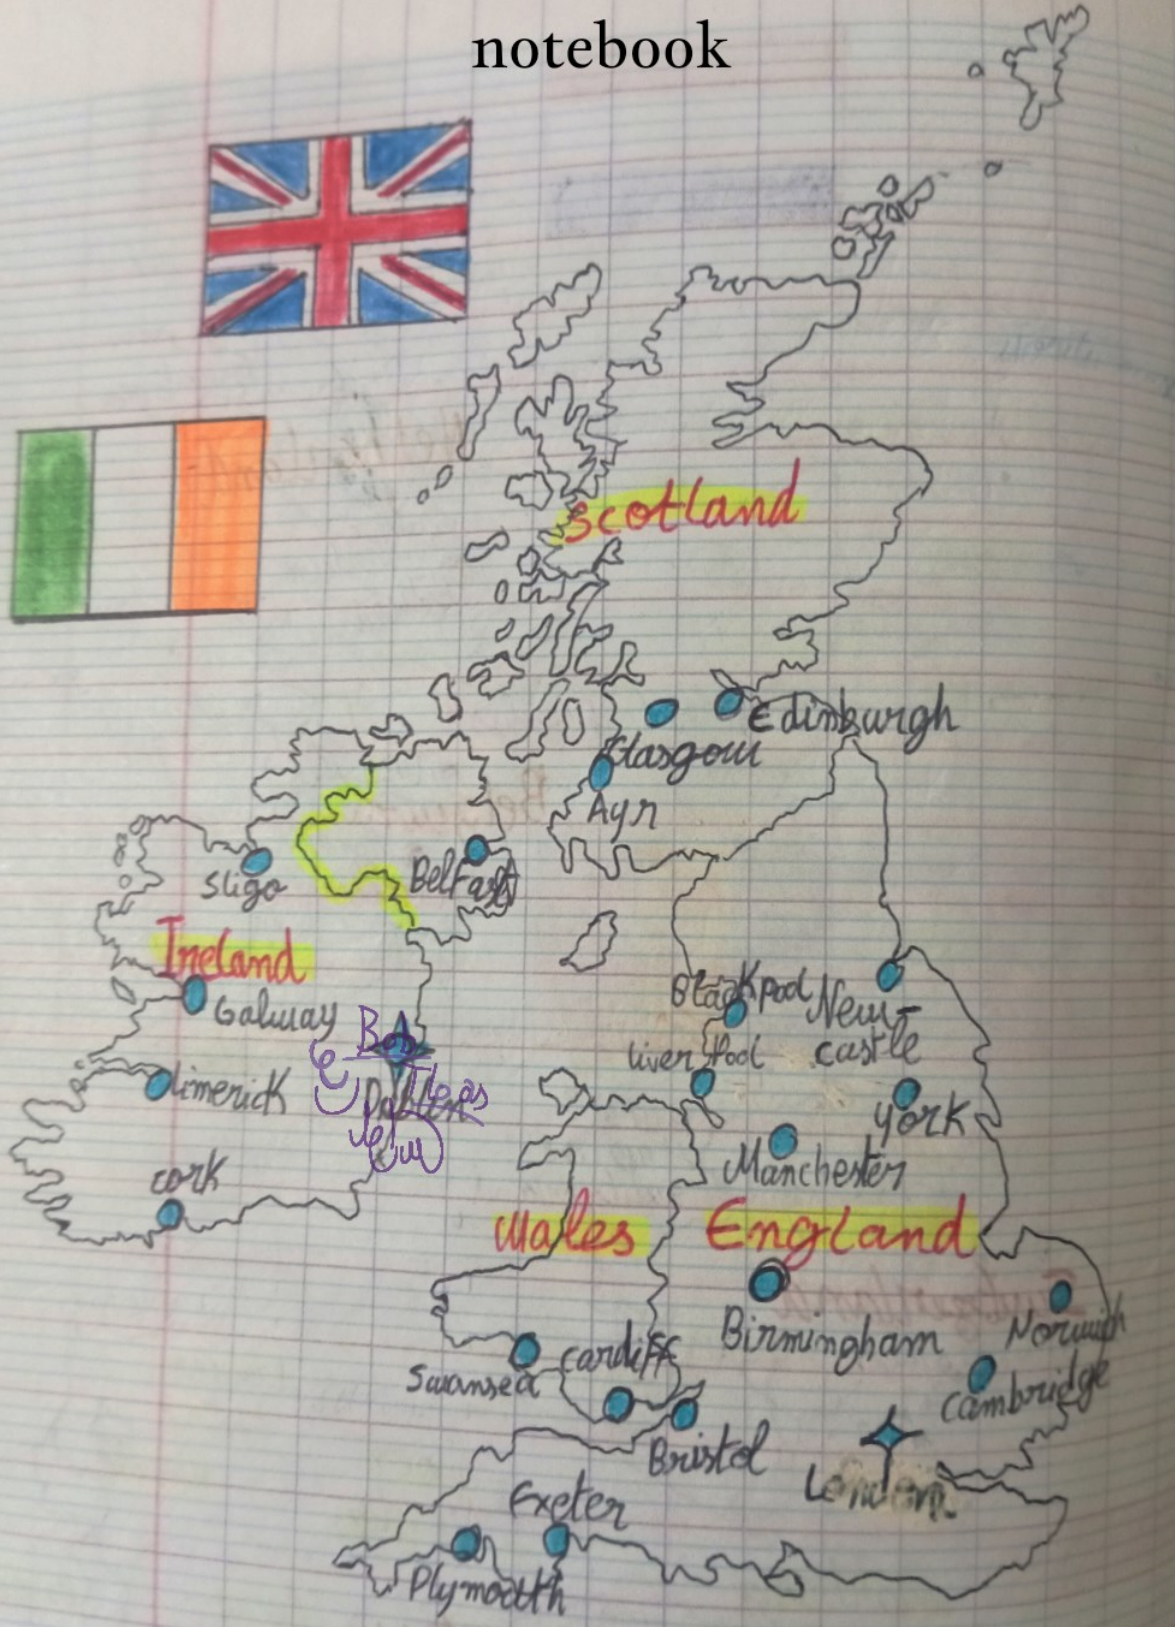 notebook
Scotland
Edinburgh
Glasgow
Ayr
Belfast
Sligo
Ireland
Galway
Blackpool
New-
castle
liverpool
limerick
york
Manchester
cork
Wales
England
Birmingham
Norwich
Cardiff
Swansea
Cambridge
Bristol
London
Exeter
Plymouth